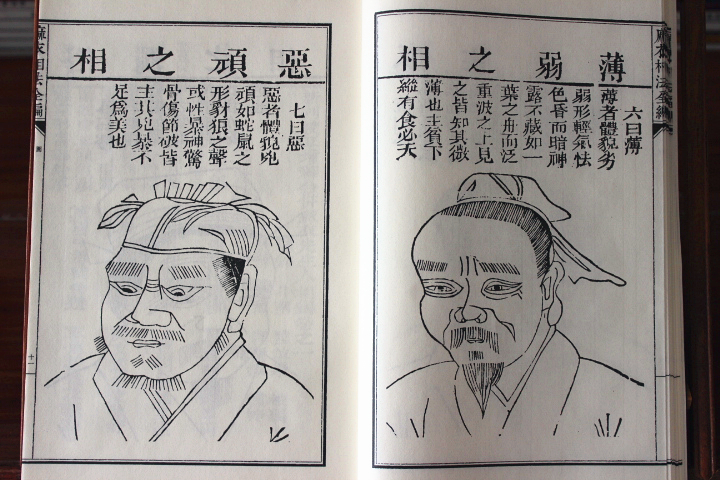 麻衣相法全編
薄弱之相
六曰薄
薄者體貌劣
弱形輕氣怯
色昏而暗神
露不藏如一
葉之舟而泛
重波之上見
之皆知其微
薄也主貧下
縱有食必夭
惡頑之相
七曰惡
惡者體貌兇
頑如蛇鼠之
形豺狼之聲
或性暴神驚
骨傷節破皆
主其兇暴不
足爲美也
麻衣相法全編
十一